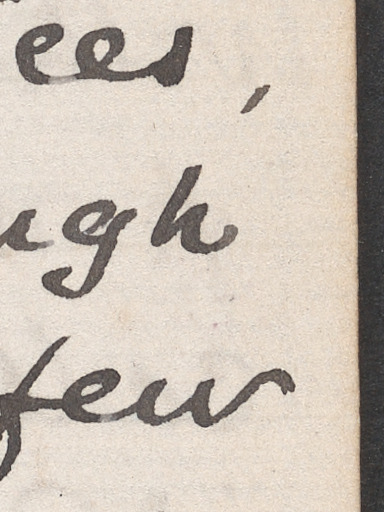 ees,
ugh
few